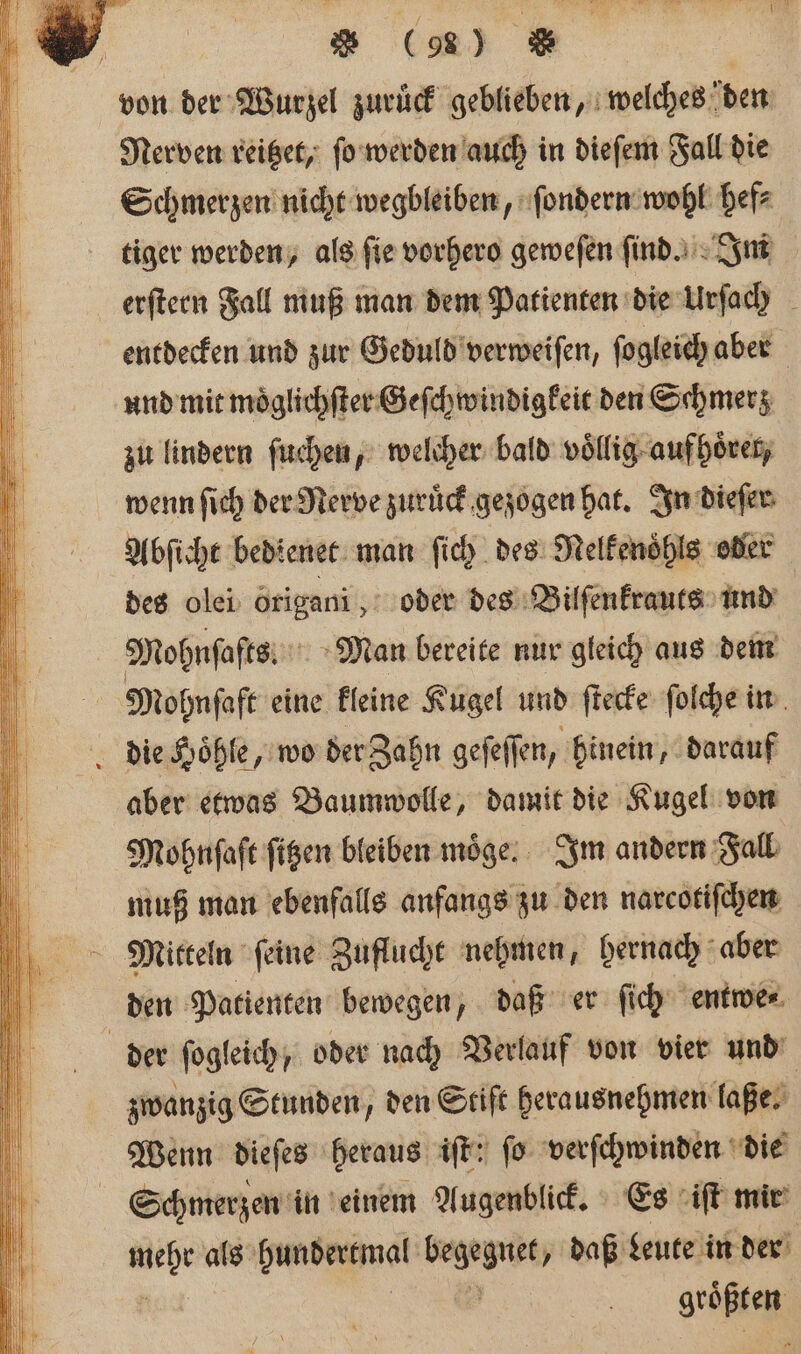 ❀ (98) ❀
von der Wurzel zuruͤck geblieben, welches den
Nerven reitzet, ſo werden auch in dieſem Fall die
Schmerzen nicht wegbleiben, ſondern wohl hef⸗
tiger werden, als ſie vorhero geweſen ſind. Im
erſtern Fall muß man dem Patienten die Urſach
entdecken und zur Geduld verweiſen, ſogleich aber
und mit moͤglichſter Geſchwindigkeit den Schmerz
zu lindern ſuchen, welcher bald voͤllig aufhoͤret,
wenn ſich der Nerve zuruͤck gezogen hat. In dieſer
Abſicht bedienet man ſich des Nelkenoͤhls oder
des olei origani, oder des Bilſenkrauts und
Mohnſafts. Man bereite nur gleich aus dem
Mohnſaft eine kleine Kugel und ſtecke ſolche in
die Hoͤhle, wo der Zahn geſeſſen, hinein, darauf
aber etwas Baumwolle, damit die Kugel von
Mohnſaft ſitzen bleiben moͤge. Im andern Fall
muß man ebenfalls anfangs zu den narcotiſchen
Mitteln ſeine Zuflucht nehmen, hernach aber
den Patienten bewegen, daß er ſich entwe⸗
der ſogleich, oder nach Verlauf von vier und
zwanzig Stunden, den Stift herausnehmen laße.
Wenn dieſes heraus iſt: ſo verſchwinden die
Schmerzen in einem Augenblick. Es iſt mir
mehr als hundertmal begegnet, daß Leute in der
groͤßten